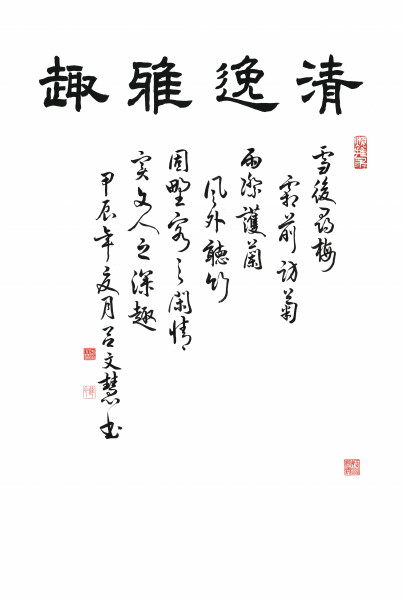 清逸雅趣
雪後尋梅
霜前訪菊
雨際護蘭
風外聽竹
固野客之閑情
實文人之深趣
甲辰年夏月呂文慧书